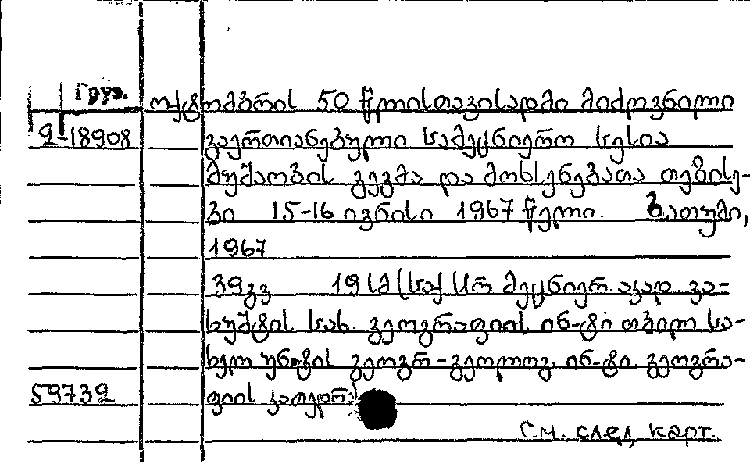 Груз.
ოქტომბრის 50 წლისთავისადმი მიძღვნილი
2-18908 გაერთიანებული სამეცნიერო სესია
მუშაობის გეგმა და მოხსენებათა თეზისე-
ბი 15-16 ივნისი 1967 წელი. ბათუმი,
1967
39გვ 19სმ (საქ სსრ მეცნიერ. აკად. ვა-
ხუშტის სახ. გეოგრაფიის ინ-ტი თბილ სა-
ხელ უნ-ტის გეოგრ-გეოლოგ. ინ-ტი გეოგრა-
59732 ფიის კათედრა
См. след. карт.